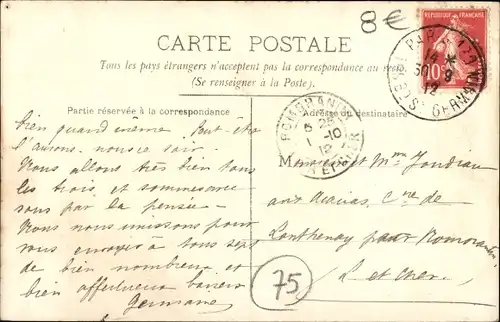 8€
CARTE POSTALE
Tous les pays étrangers n'acceptent pas la correspondance au recto
(Se renseigner à la Poste).
Partie réservée à la correspondance
Adresse du destinataire
RÉPUBLIQUE FRANÇAISE
10
PARIS
Bd St GERMAIN
12
ROMORANTIN
1 -10
12
LOIR-ET-CHER
bien quand même. Peut-être
l'auriez nous ce soir
Nous allons très bien tous
les trois, et sommes avec
vous par la pensée
Nous nous unissons pour
vous envoyer à tous sept
de bien nombreux et
bien affectueux baisers
Germaine
Monsieur et Mme Joudrau
aux Acacias, Cne de
Lanthenay par Romorantin
L. et Cher.
75